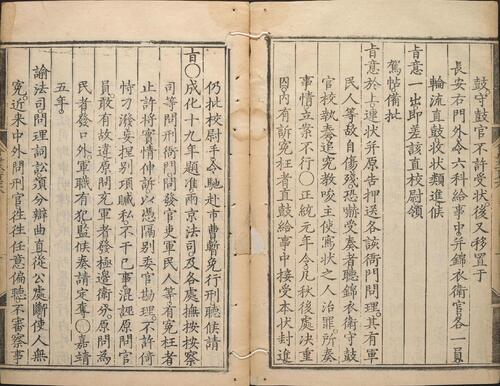 鼓守鼓官不許受狀後又移置于
長安右門外令六科給事中并錦衣衛官各一員
輪流直鼓收狀類進候
旨意一出即差該直校尉領
駕帖備批
旨意於上連狀并原告押送各該衙門問理其有軍
民人等故自傷殘恐嚇受奏者聽錦衣衛守鼓
官校執奏追究教唆主使寫狀之人治罪所奏
事情立案不行○正統元年令凡秋後處決重
囚內有訴冤枉者直鼓給事中接受本狀封進
仍批校尉手令馳赴市曹暫免行刑聽候請
旨○成化十九年題准兩京法司及各處撫按按察
司等問刑衙門問發官吏軍民人等有冤枉者
止許將實情伸訴以憑隔別委官勘理不許倚
恃刁潑妄捏別項贓私不干己事混誣原問官
員敢有故違原問充軍者發極邊衛分原問為
民者發口外軍職有犯監候奏請定奪○嘉靖
五年
諭法司問理詞訟須分辯曲直從公處斷使人無
冤近來中外問刑官往往任意偏聽不審察事